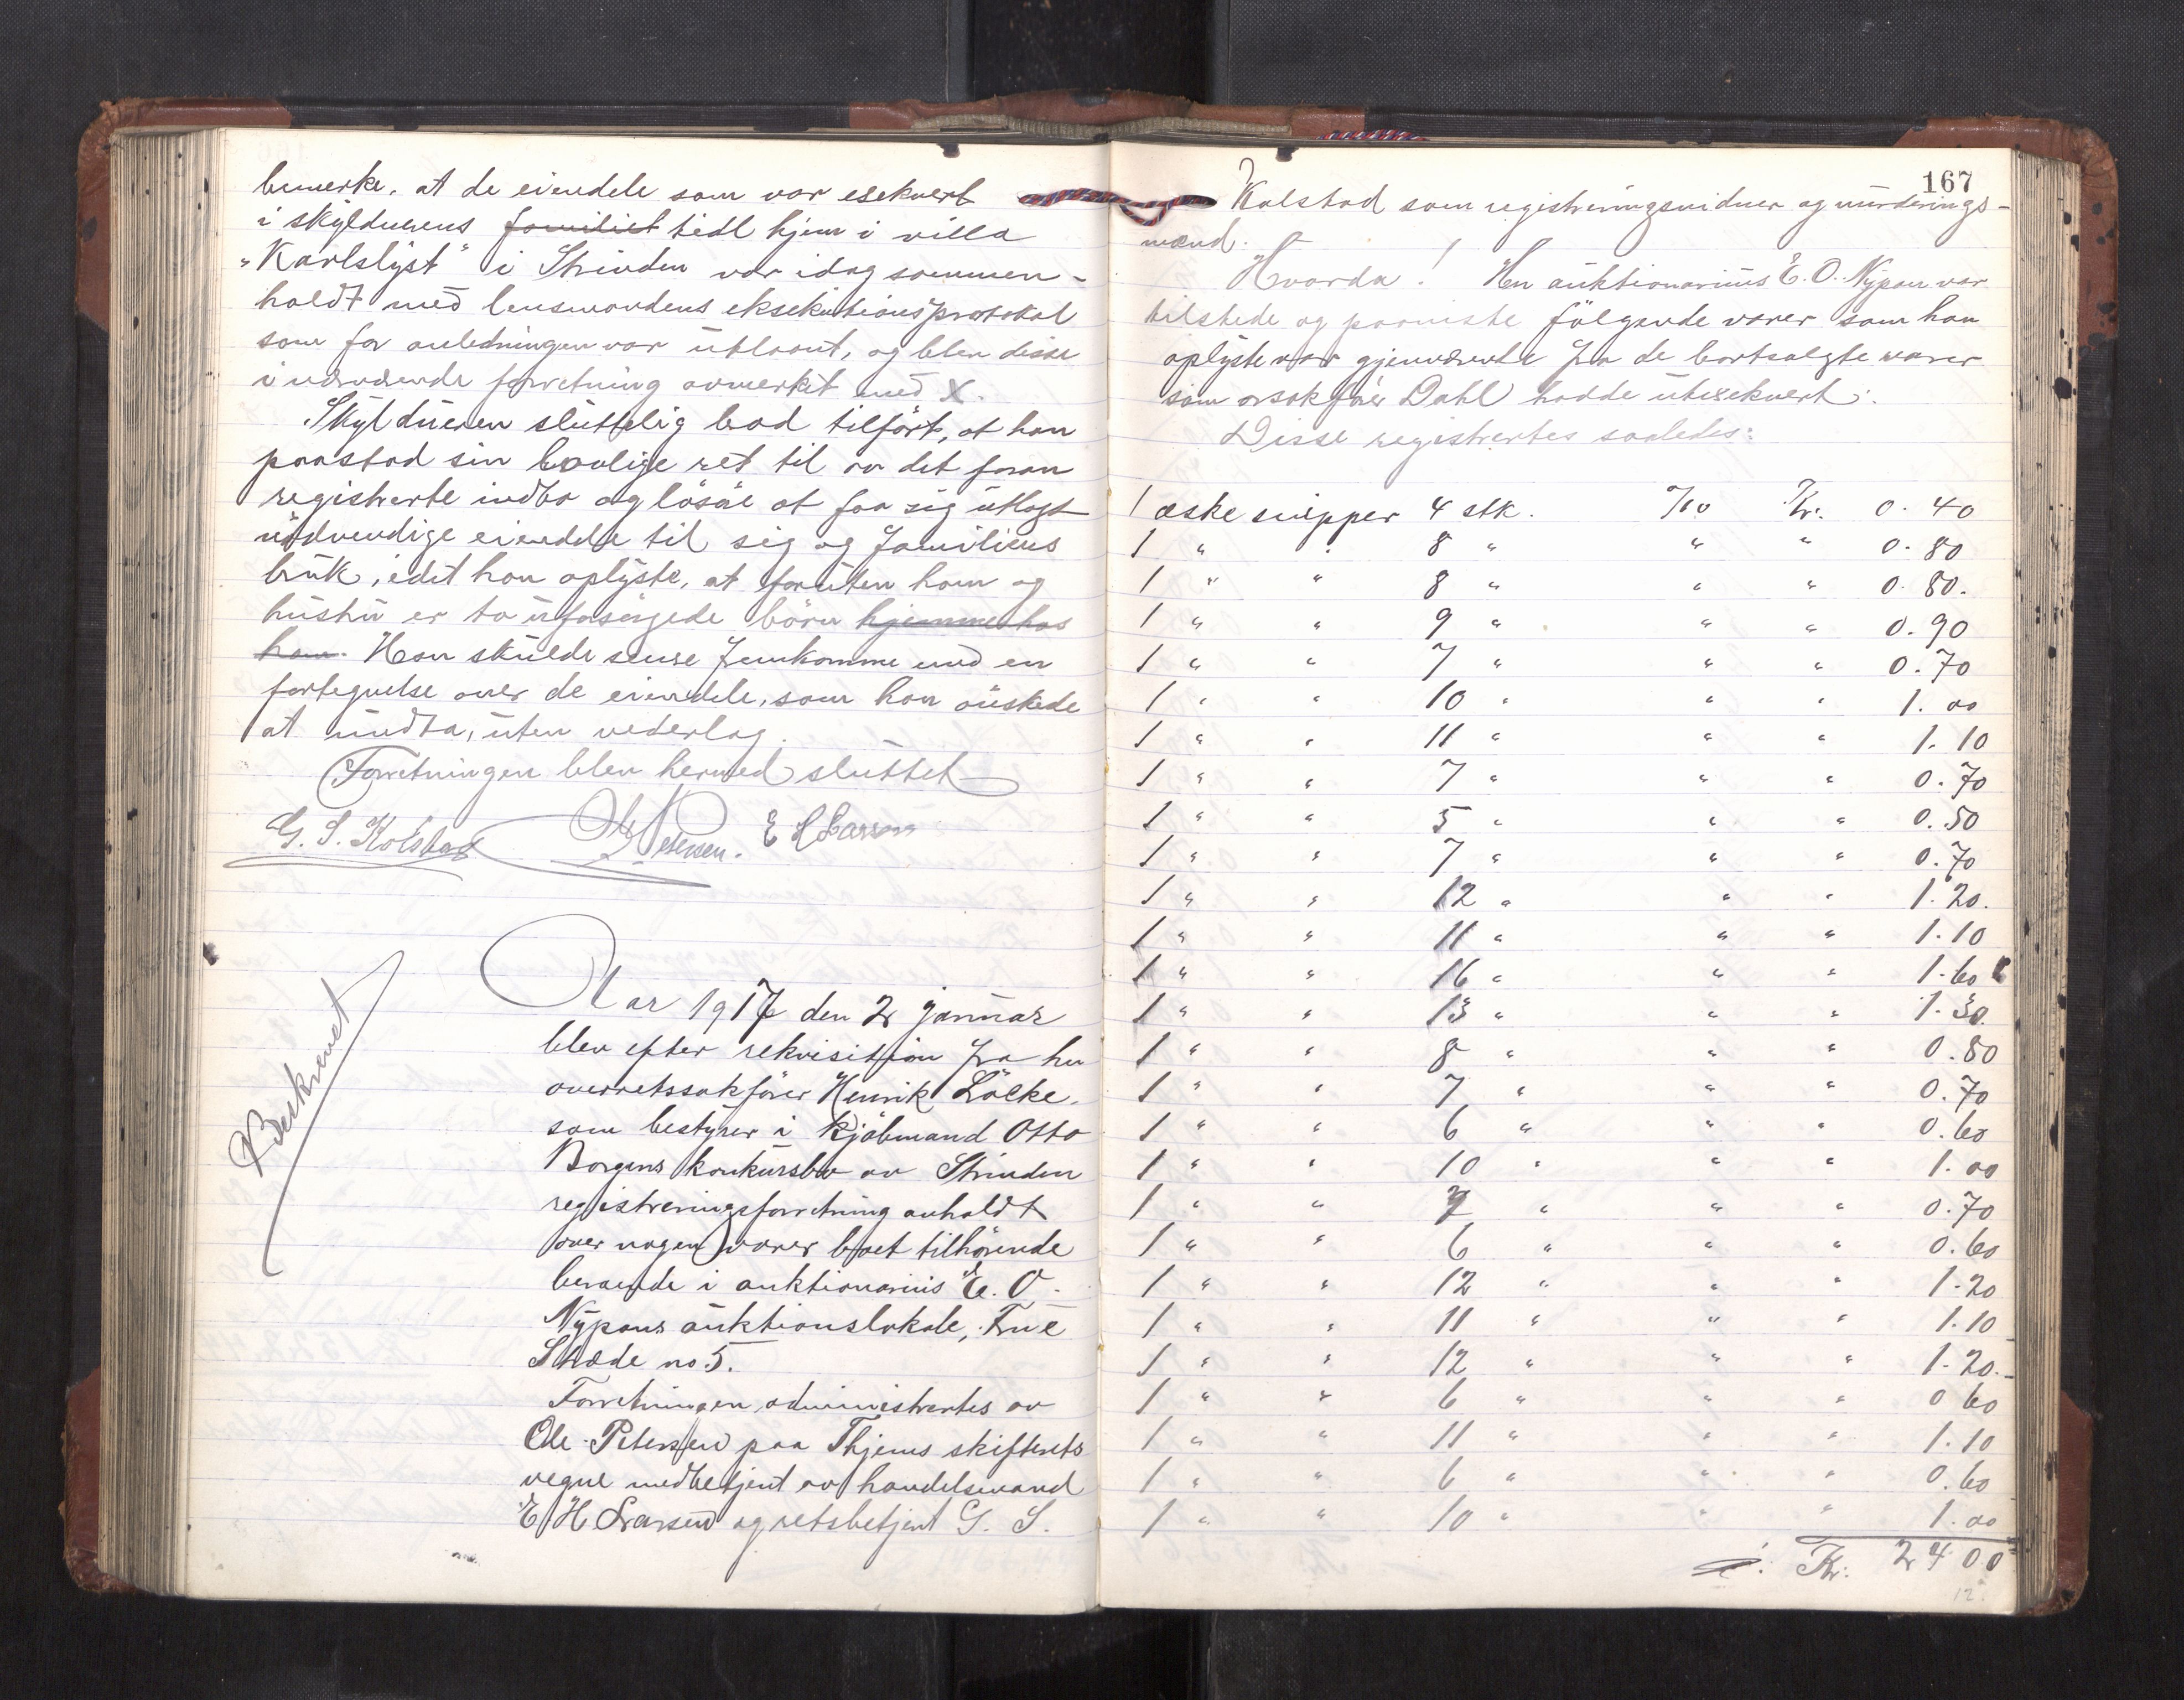 bemerke, at de eiendele som var eksekvert
i skyldnerens familiet tidl hjem i villa
"Karlslyst" i Strinden var idag sammen-
holdt med lensmandens eksekutionsprotokol
som for anledningen var utlaant, og blev disse
i nærværende forretning avmerket med X.
Skyldneren sluttelig bad tilført, at han
paastod sin lovlige ret til av det foran
registrerte indbo og løsøre at faa sig utlagt
nødvendige eiendele til sig og familiens
bruk, idet han oplyste, at foruten ham og
hustru er to uforsørgede børn hjemme hos
ham. Han skulde senere fremkomme med en
fortegnelse over de eiendele, som han ønskede
at undta, uten vederlag.
Forretningen blev hermed sluttet
G. S. Kolstad Ole Petersen. E H Larsen
Beskrevet
Aar 1917 den 2 januar
blev efter rekvisition fra hr
overretssakfører Henrik Løcke.
som bestyrer i kjøbmand Otto
Borgens konkursbo av Strinden
registreringsforretning avholdt
over nogen varer boet tilhørende
beroende i auktionarius E. O.
Nypans auktionslokale, Frue
Stræde no 5.
Forretningen administrertes av
Ole Petersen paa Thjems skifterets
vegne medbetjent av handelsmand
E H Larsen og retsbetjent G. S.
167
Kolstad som registreringsvidner og vurderings-
mænd.
Hvorda! Hr auktionarius E. O. Nypan var
tilstede og paaviste følgende varer som han
oplyste var gjenværende fra de bortsolgte varer
som orsakfører Dahl hadde uteksekvert.
Disse registrertes saaledes:
1 æske snipper 4 stk. 7/10 Kr. 0.40
1 " " 8 " " " 0.80
1 " " 8 " " " 0.80.
1 " " 9 " " " 0.90
1 " " 7 " " " 0.70
1 " " 10 " " " 1.00
1 " " 11 " " " 1.10
1 " " 7 " " " 0.70
1 " " 5 " " " 0.50
1 " " 7 " " " 0.70
1 " " 12 " " " 1.20.
1 " " 11 " " " 1.10
1 " " 16 " " " 1.60
1 " " 13 " " " 1.30.
1 " " 8 " " " 0.80
1 " " 7 " " " 0.70
1 " " 6 " " " 0.60
1 " " 10 " " " 1.00
1 " " 7 " " " 0.70
1 " " 6 " " " 0.60
1 " " 12 " " " 1.20
1 " " 11 " " " 1.10
1 " " 12 " " " 1.20.
1 " " 6 " " " 0 60
1 " " 11 " " " 1.10
1 " " 6 " " " 0.60
1 " " 10 " " " 1.00
Kr. 24 00
12.